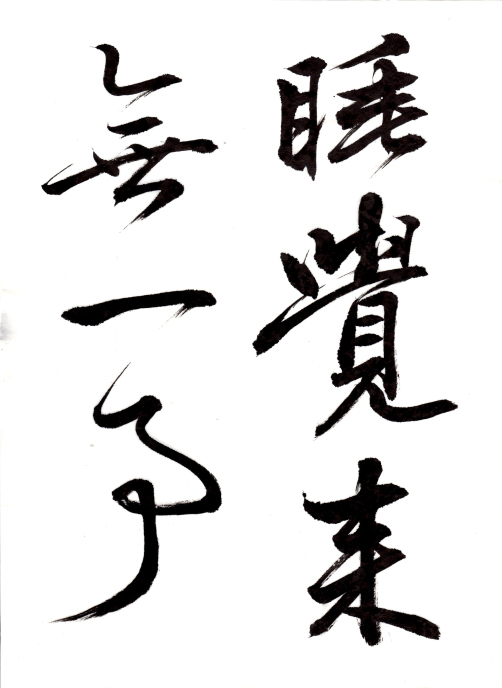 睡覺来
無一事